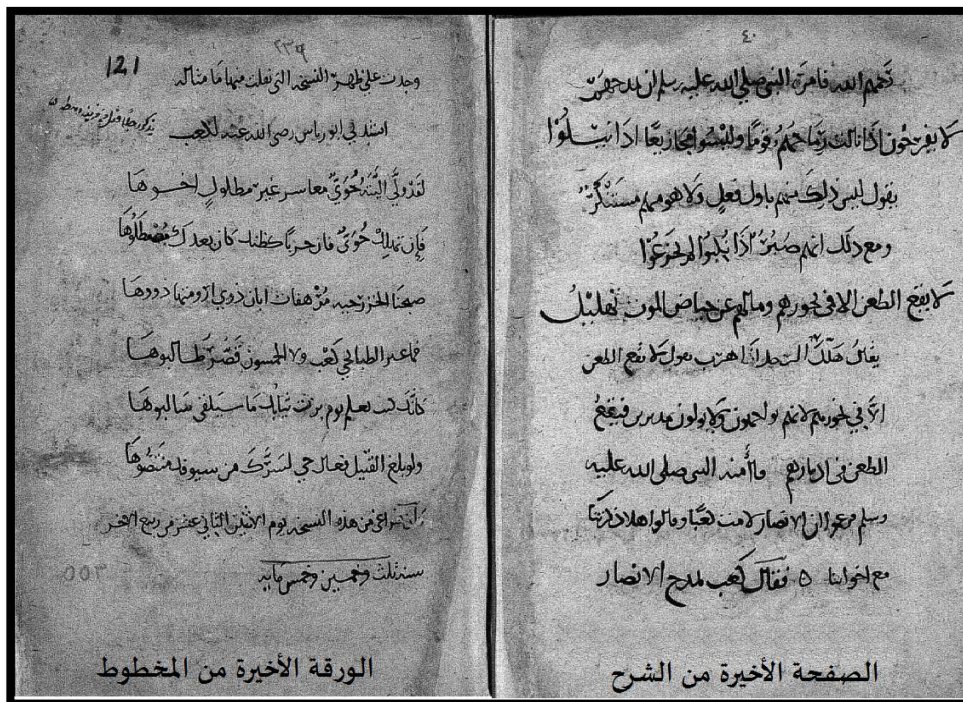 ٤٠
الله فامره النبي صلى الله عليه وسلم ان يمدحهم
لا يفرحون اذا نالت رماحهم قوما وليسوا مجازيعا اذا نيلوا
يقول ليس ذلك منهم باول فعل ولا هو منهم مستنكر
ومع ذلك انهم صبر اذا نكبوا لم يجزعوا
لا يقع الطعن الا في نحورهم وما لهم عن حياض الموت تهليل
يقال هلل الرجل اذا هرب يقول لا يقع الطعن
الا في نحورهم لانهم يواجهون ولا يولون مدبرين فيقع
الطعن في ادبارهم فلما أمنه النبي صلى الله عليه
وسلم فزعموا ان الانصار لامت كعبا وقالوا هلا ذكرتنا
مع اخواننا ه فقال كعب يمدح الانصار
الصفحة الأخيرة من الشرح
٢٣٩
121
وجدت على ظهر النسخة التي نقلت منها ما مثاله
انشدني ابو رياش رضى الله عنه لكعب
لقد ولى اليته حوي معاشر غير مطلول اخوها
فان تهلك حوي فان حربا كظنك كان بعدك مصطلوها
صبحنا الخزرجية مرهفات ابان ذوي ارومتها ذووها
فما عتر الظباء بحي كعب ولا الخمسون قصر طالبوها
كانك كنت تعلم يوم بزت ثيابك ما سيلقى سالبوها
ولو بلغ القتيل فعال حي لسرك من سيوفك منتضوها
وكان فراغي من هذه النسخة يوم الاثنين الثاني عشر من ربيع الاخر
سنة ثلث وخمسين وخمس مايه
٥٥٣
الورقة الأخيرة من المخطوط